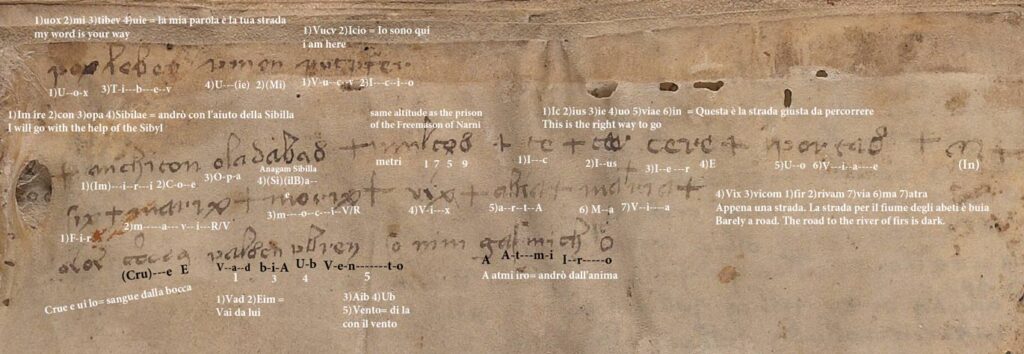 1)uox 2)mi 3)tibev 4)uie = la mia parola è la tua strada
my word is your way
1)Vucv 2)Icio = Io sono qui
i am here
umen
1)U--o-x 3)T-i---b---e--v 4)U---(ie) 2)(Mi) 3)V-u--c--v 2)I---c-i--o
1)Im ire 2)con 3)opa 4)Sibilae = andrò con l'aiuto della Sibilla
I will go with the help of the Sibyl
same altitude as the prison
of the Freemason of Narni
1)Ic 2)ius 3)ie 4)uo 5)viae 6)in = Questa è la strada giusta da percorrere
This is the right way to go
+ anchiton oladabas + multos + te + cere + portas +
1)(Im)---i--r--i 2)C-o--e 3)O-p-a
Anagam Sibilla
4)(Si)(ilB)a--
metri 1 7 5 9
1)I---c 2)I---us 3)I--e---r 4)E 5)U---o 6)V---i---a---e (In)
six + marix + morix + vix + abia + maria +
1)F-i-r 2)m-----a--- v--i---R/V 3)m----o--c---i--V/R 4)V-i---x 5)a--r--t--A 6) M--a 7)V---i----a
4)Vix 3)vicom 1)fir 2)rivam 7)via 6)ma 7)atra
Appena una strada. La strada per il fiume degli abeti è buia
Barely a road. The road to the river of firs is dark.
ubren so nim gas mich o
(Cru)---e E V--a--d b-i-A U-b V-e-n-------t-o A A-t---m-i I--r-----o
1 3 4 5
A atmi iro= andrò dall'anima
Crue e ui lo= sangue dalla bocca
1)Vad 2)Eim =
Vai da lui
3)Aib 4)Ub
5)Vento= di la
con il vento